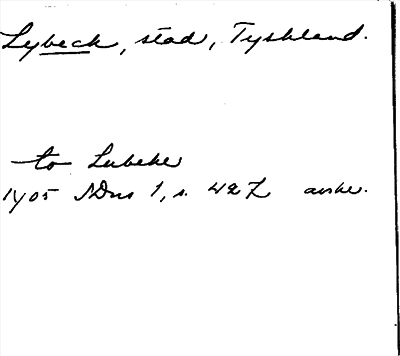 Lybeck, stad, Tyskland.
to Lubeke
1405 NDns 1, s. 427 avskr.